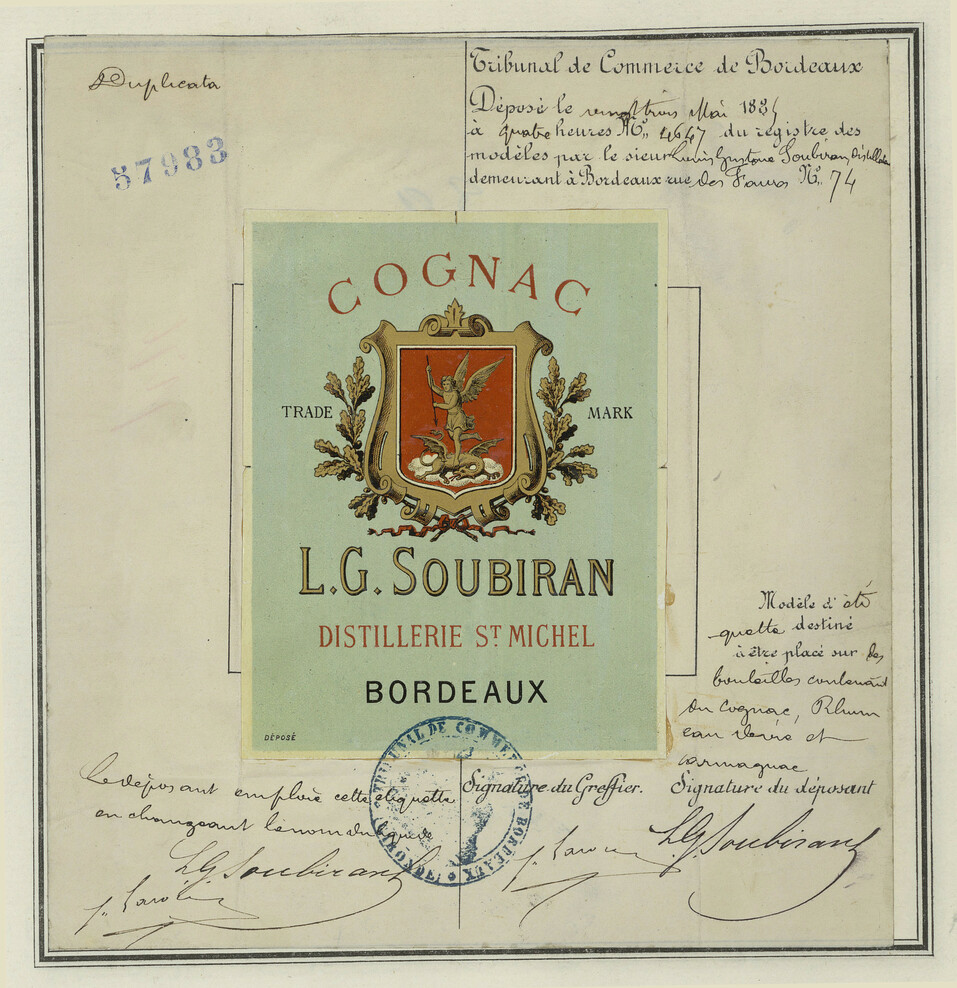 Duplicata
57983
Tribunal de Commerce de Bordeaux
Déposé le vingt trois Mai 188
à quatre heures No. 4647 du registre des
modèles par le sieur Louis Gustave Soubiran Distillateur
demeurant à Bordeaux rue des Faures No. 74
COGNAC
TRADE MARK
L.G. SOUBIRAN
DISTILLERIE ST MICHEL
BORDEAUX
DÉPOSÉ
Modèle d'éti
quette destiné
à être placé sur des
bouteilles contenant
du Cognac, Rhum
eau de vie et
armagnac
Le déposant emploie cette étiquette
en changeant le nom du liquide
LG. Soubiran
TRIBUNAL DE COMMERCE DE BORDEAUX
Signature du Greffier.
Signature du déposant
LG. Soubiran